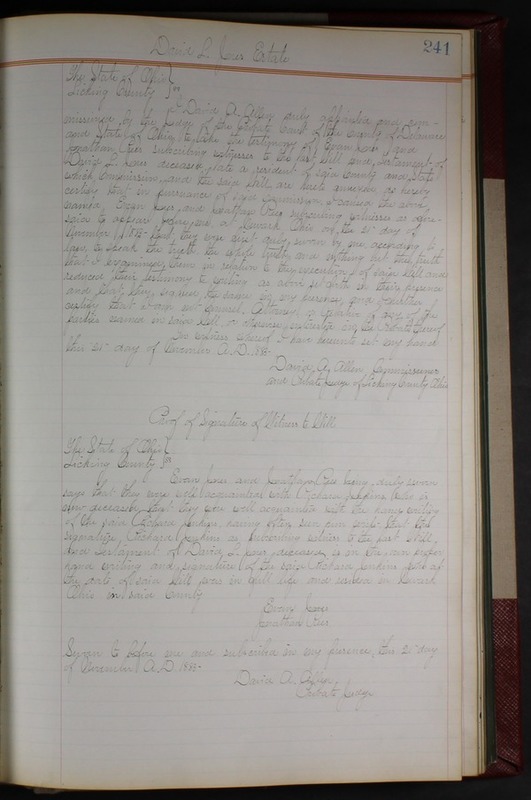 241
David L. Jones Estate
The State of Ohio }
Licking County } ss
I David A. Allen duly appointed and com-
missioned by the Judge of the Probate Court of the County of Delaware
and State of Ohio, to take the testimony of Evan Jones and
Jonathan Rees subscribing witnesses to the last Will and testament of
David L. Jones deceased, late a resident of said County and State
which Commission and the said Will are hereto annexed do hereby
certify that in pursuance of said Commission I caused the above
named Evan Jones and Jonathan Rees subscribing witnesses as afore-
said to appear before me, at Newark Ohio on the 21st day of
November 188 that they were first duly sworn by me, according to
law, to speak the truth the whole truth, and nothing but the truth
that I examined them in relation to the execution of said Will and
reduced their testimony to writing as above set forth in their presence
and that they signed the same in my presence, and I further
certify that I am not Counsel, Attorney or relative of any of the
parties named in said Will, or otherwise interested in the Probate thereof
In witness whereof I have hereunto set my hand
this 21st day of November A.D. 188
David A. Allen, Commissioner
and Probate Judge of Licking County Ohio
Proof of Signature of Witness to Will
The State of Ohio }
Licking County } ss
Evan Jones and Jonathan Rees being duly sworn
says that they were well acquainted with Richard Jenkins who is
now deceased, that they were well acquainted with the hand writing
of the said Richard Jenkins, having often seen him write that the
signature, Richard Jenkins as subscribing witness to the last Will
and Testament of David L. Jones, deceased, is in the own proper
hand writing and signature of the said Richard Jenkins who at
the date of said Will was in full life and resided in Newark
Ohio in said County
Evan Jones
Jonathan Rees
Sworn to before me and subscribed in my presence, this 21st day
of November A.D. 188
David A. Allen,
Probate Judge